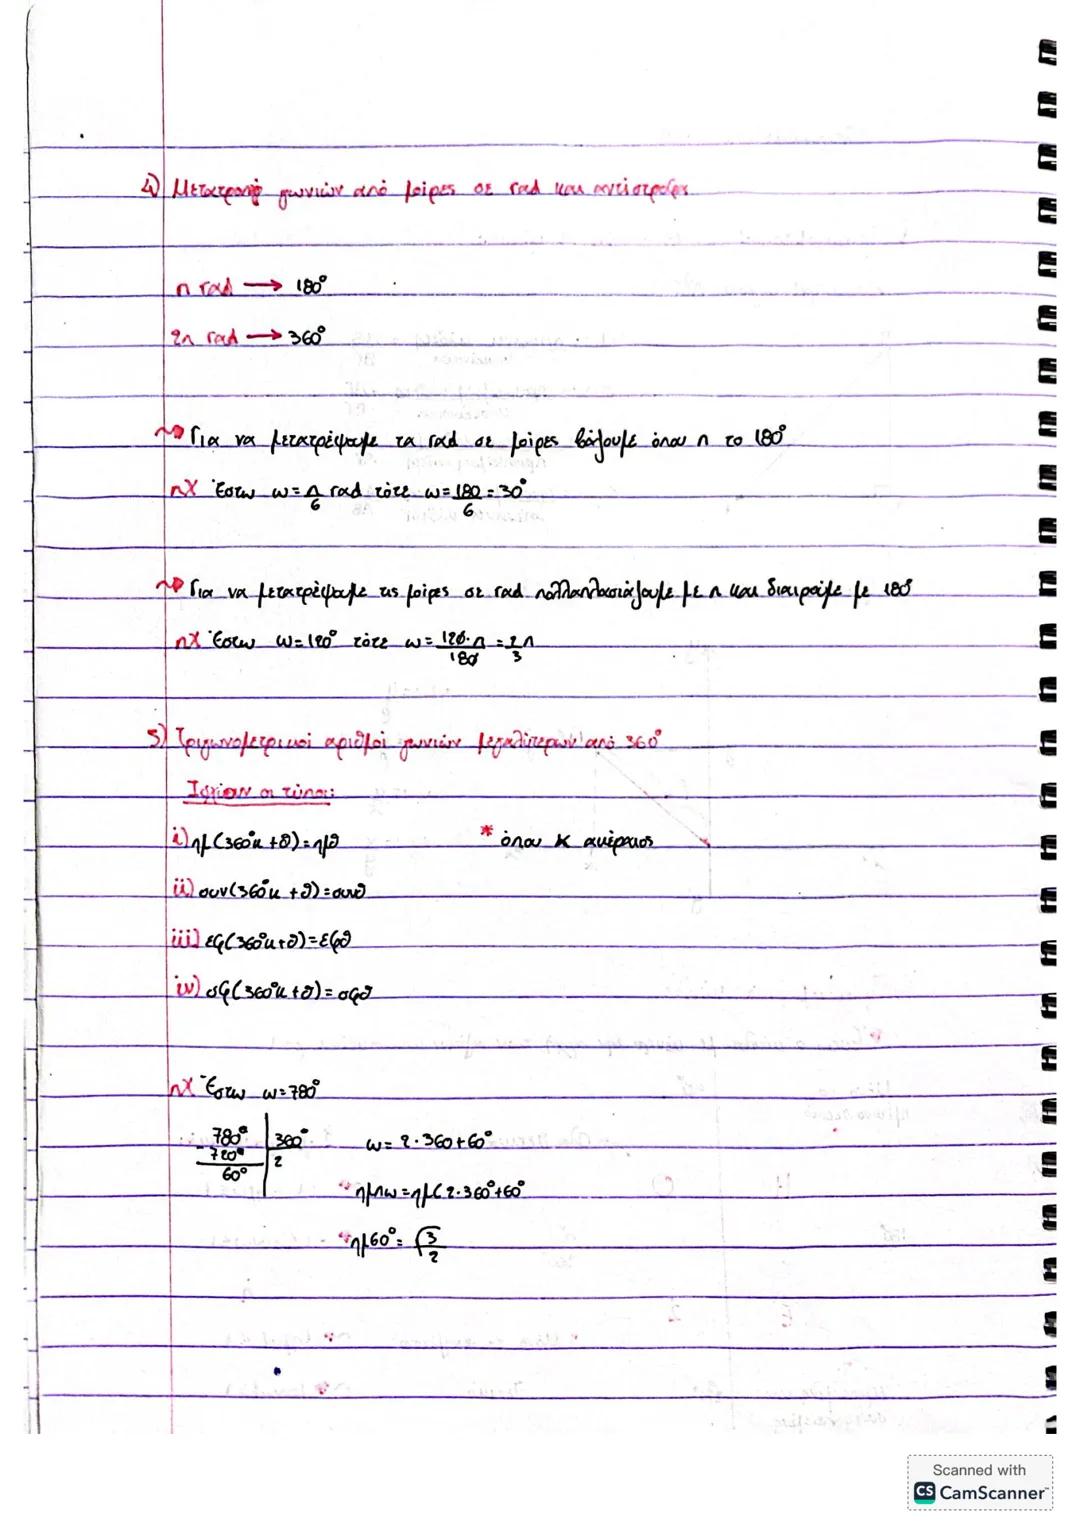 4) Μετατροπή γωνιών από μοίρες σε rad και αντίστροφα
π rad → 180°
2π rad → 360°
Για να μετατρέψουμε τα rad σε μοίρες βάζουμε όπου π το 180°
πχ Έστω ω = π/6 rad τότε ω = 180/6 = 30°
Για να μετατρέψουμε τις μοίρες σε rad πολλαπλασιάζουμε με π και διαιρούμε με 180°
πχ Έστω ω = 120° τότε ω = 120·π/180 = 2π/3
5) Τριγωνομετρικοί αριθμοί γωνιών μεγαλύτερων από 360°
Ισχύουν οι τύποι:
i) ημ(360°κ+θ)=ημθ * όπου κ ακέραιος
ii) συν(360°κ+θ)=συνθ
iii) εφ(360°κ+θ)=εφθ
iv) σφ(360°κ+θ)=σφθ
πχ Έστω ω=780°
780° | 360° ω= 2·360+60°
-720° | 2
60°
ημω=ημ(2·360°+60°
ημ60°= √3/2
Scanned with
CS CamScanner